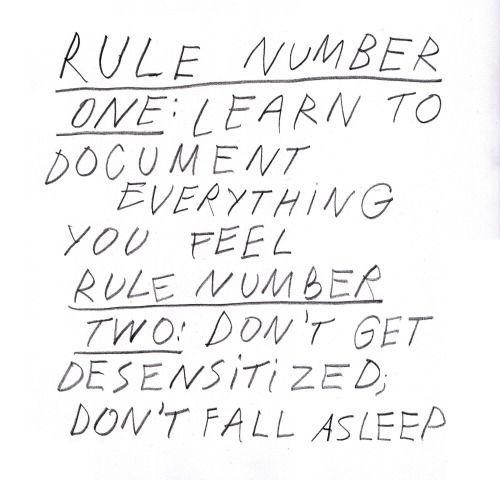 RULE NUMBER
ONE: LEARN TO
DOCUMENT
EVERYTHING
YOU FEEL
RULE NUMBER
TWO: DON'T GET
DESENSITIZED;
DON'T FALL ASLEEP